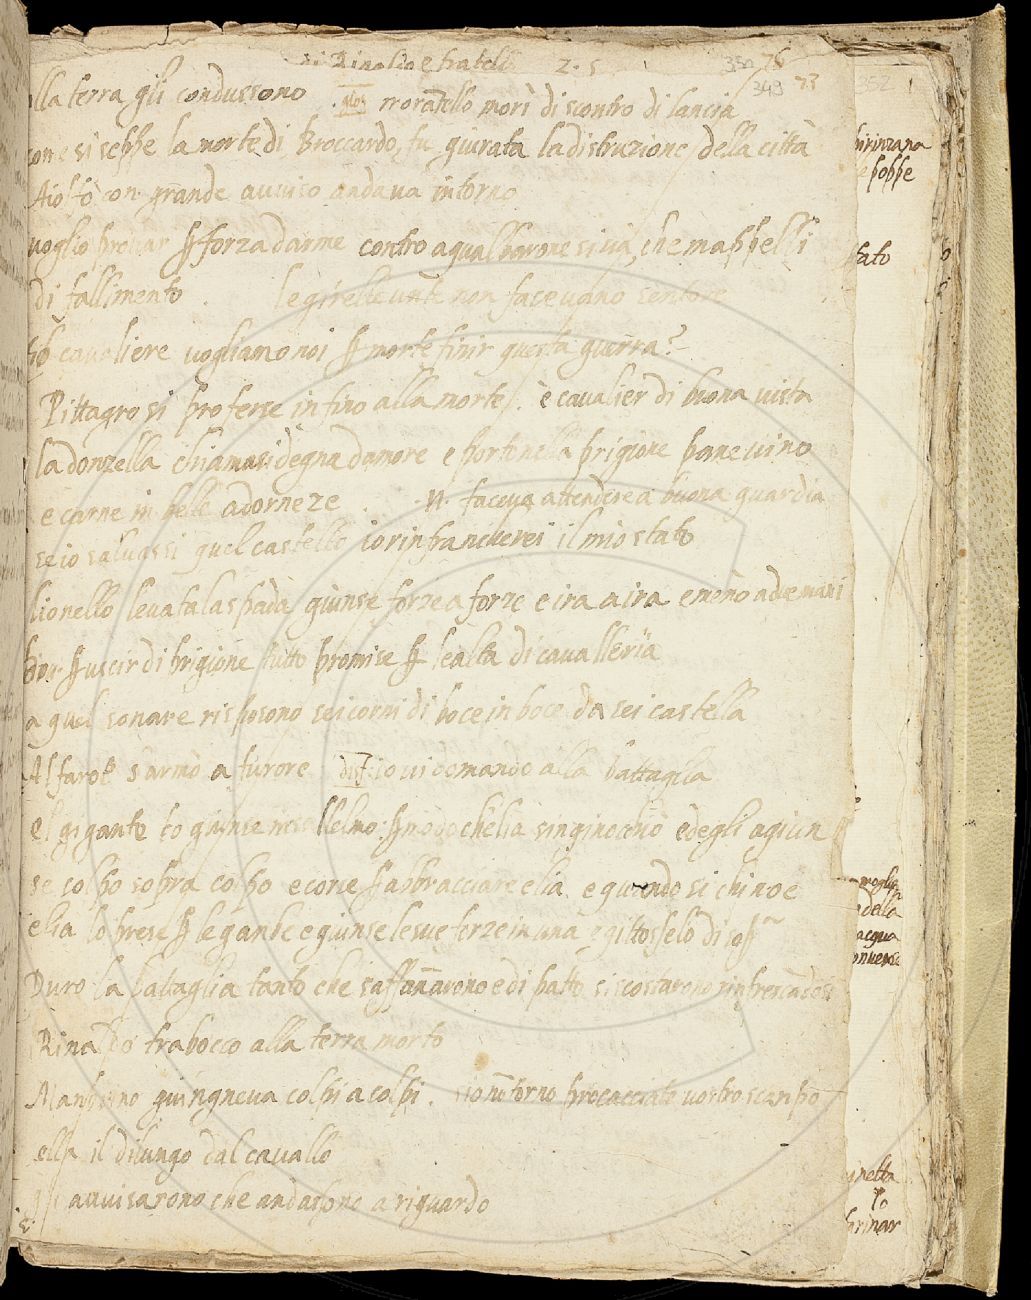 di Rinaldo e fratelli 2. 5
350 76
343 73
352
alla terra gli condussono . glos moratello morì di scontro di lancia
come si seppe la morte di Broccardo, fu giurata la distruzione della città
Aiolfo con grande avviso andava intorno
voglio provar ꝑ forza darme contro a qual barone si uà, che mappelli
di fallimento . le girelle unte non facevano sentore
cavaliere vogliamo noi ꝑ morte finir questa guerra?
Pittagro si proferse infino alla morte . è cavalier di buona vista
la donzella chiamasi degna damore e portonella prigione pane vino
e carne in belle adorneze . N. faceva attendere a buona guardia
se io salvassi quel castello io rinfrancherei il mio stato
lionello levata la spada giunse forze a forze e ira a ira e menò ad e mani
ꝑ uscir di prigione tutto promise ꝑ lealta di cavalleria
a quel sonare risposono sei corni di boce in boce da sei castella
Alfarol sarmò a furore disf: io vi domando alla battaglia
el gigante lo giunse nellelmo ꝑ modo chelia singinocchiò ed egli agiun
se colpo sopra colpo e corse ꝑ abbracciare elia e quando si chinoe
elia lo prese ꝑ le gambe e giunse le sue forze in una e gittosselo di sop
Duro la battaglia tanto che saffannarono e di patto si scostarono rinfrescandosi
Rinaldo traboccò alla terra morto
Manbrino giungneva colpi a colpi . io nō torno procacciate vostro scanpo
ella il dilungo dal cavallo
gli avvisarono che andassono a riguardo
poppe
tato
moglie
della
acqua
netta